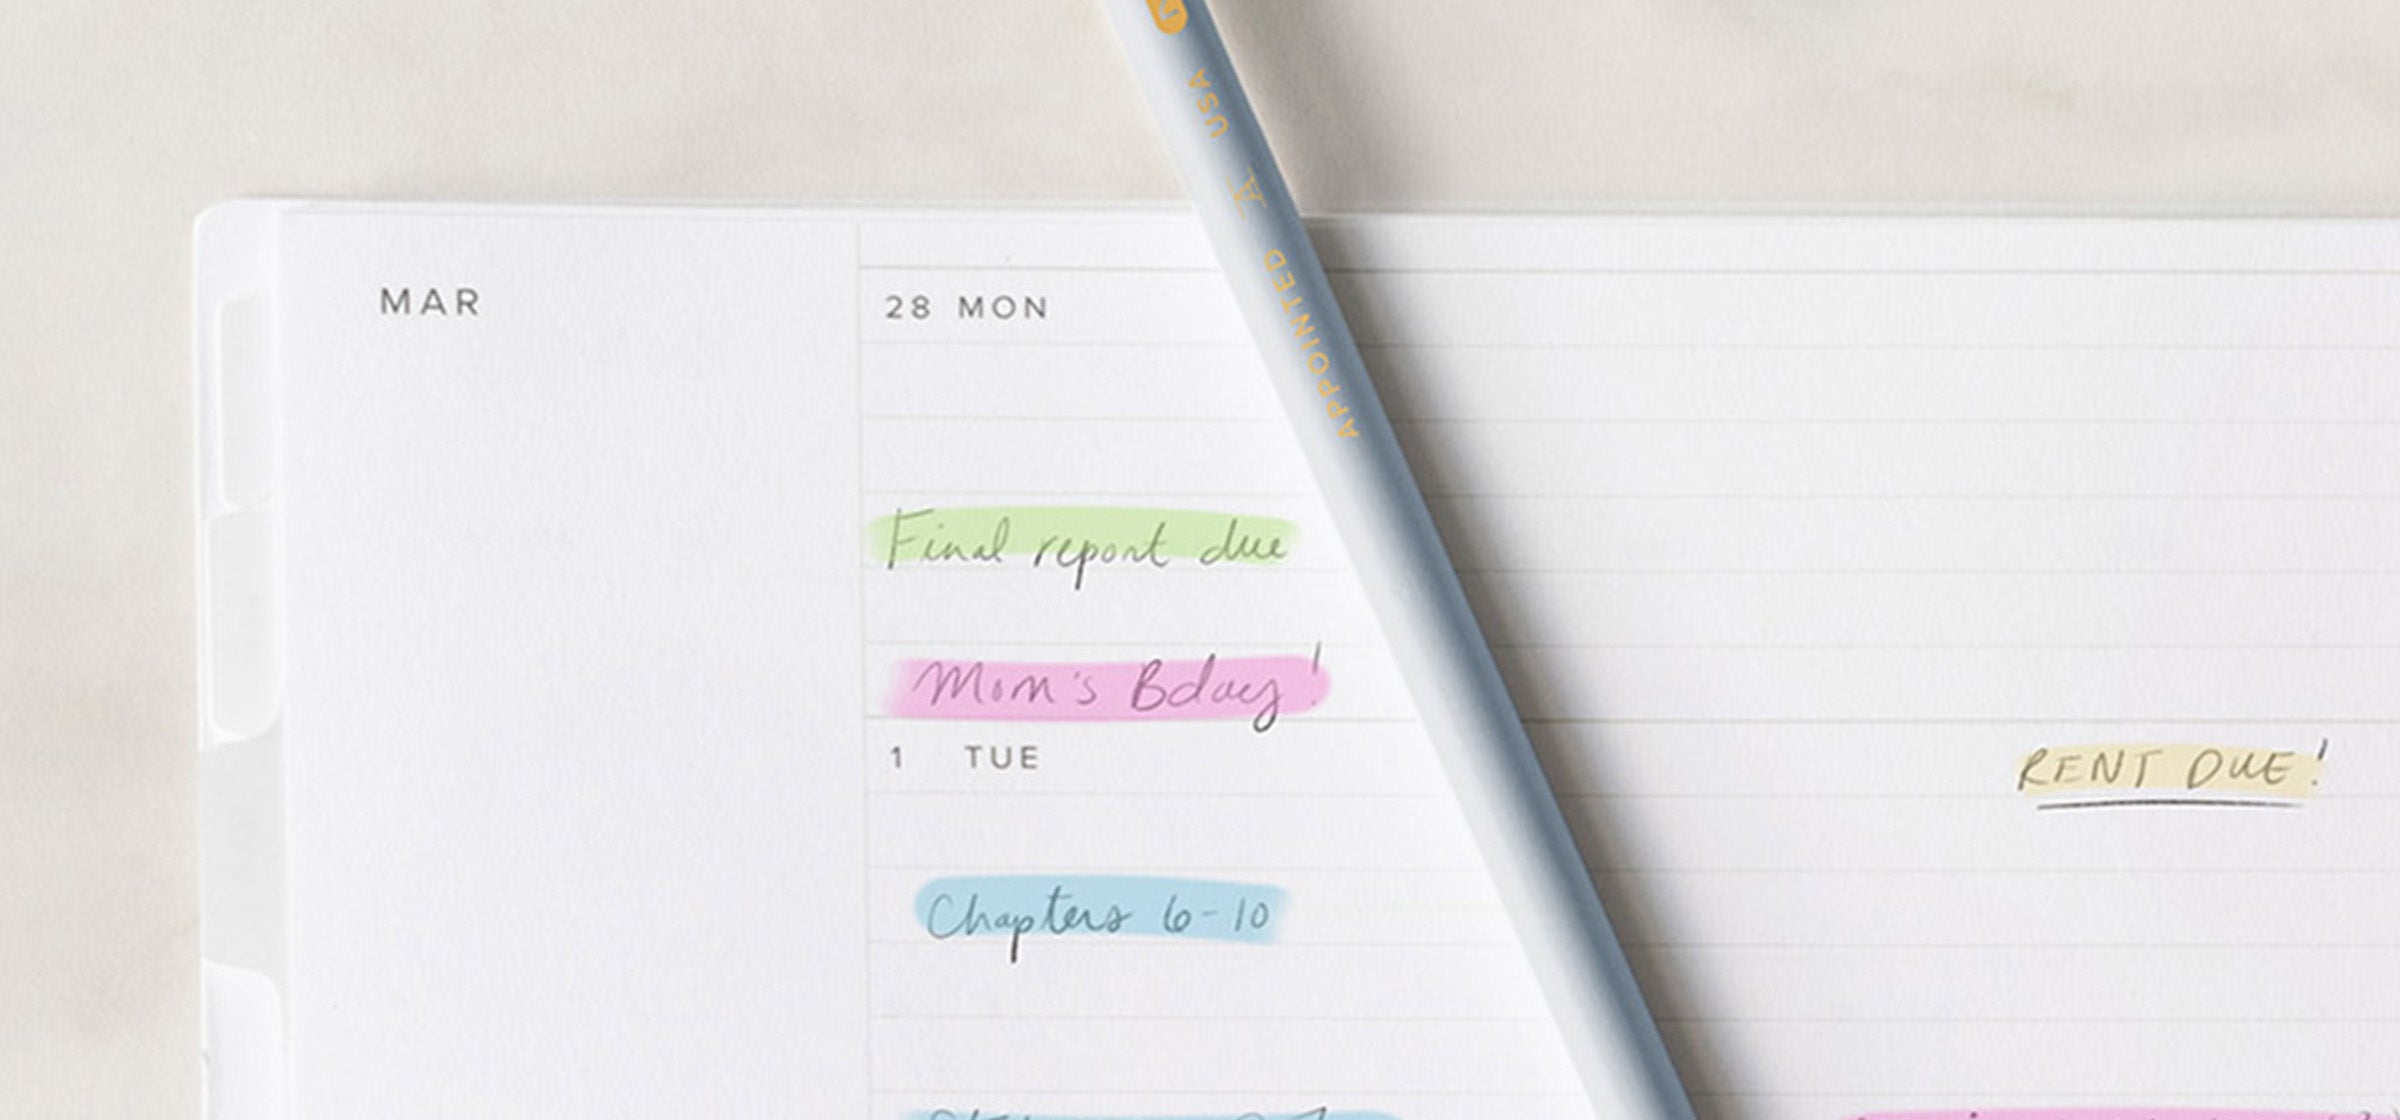 USA A APPOINTED
MAR
28 MON
Final report due
Mom's Bday!
1 TUE
RENT DUE!
Chapters 6-10